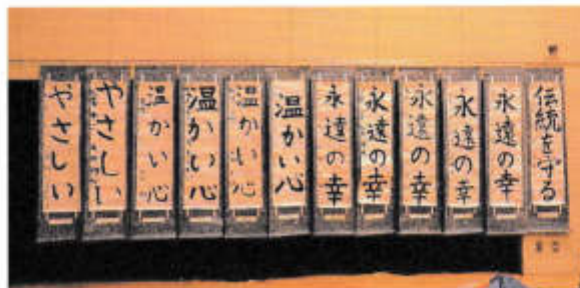 伝統を守る
永遠の幸
永遠の幸
永遠の幸
永遠の幸
永遠の幸
温かい心
温かい心
温かい心
温かい心
やさしい
やさしい